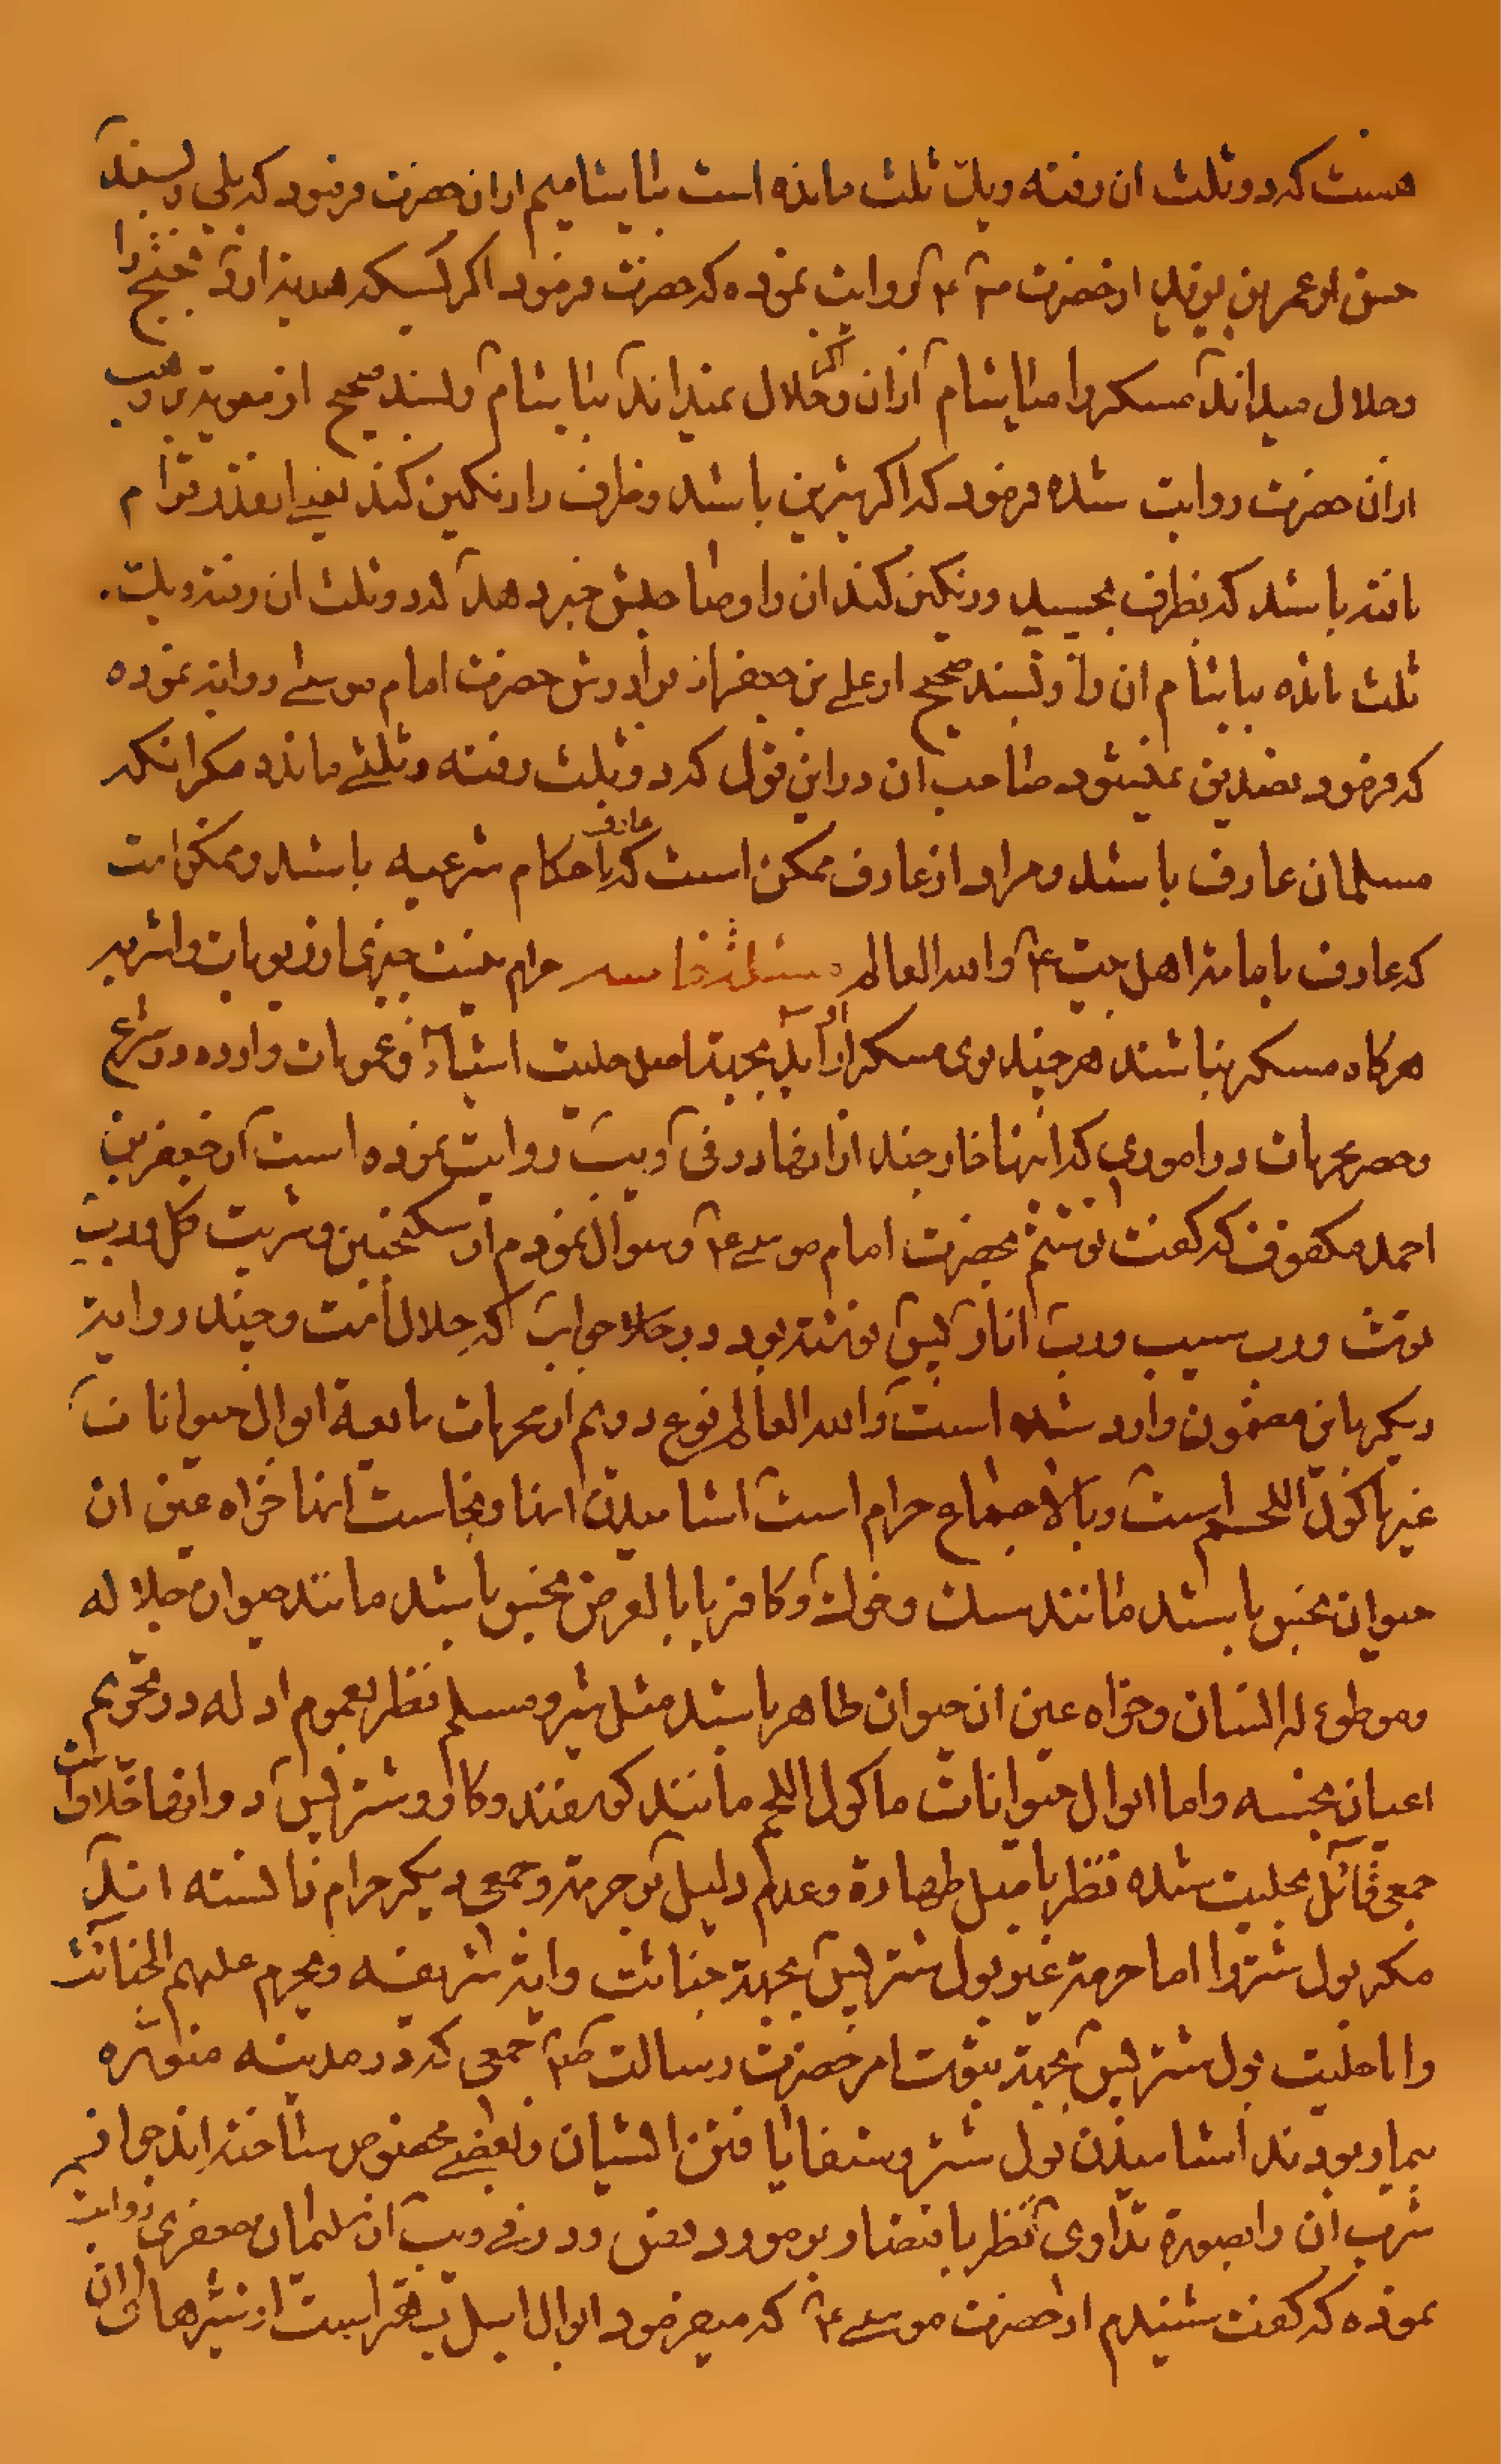 هست که دو ثلث ان رفته ویک ثلث مانده است بیاشامیم ازان حضرت فرمود که بلی وبسند
حسن از عمر بن یزید از حضرت ص ۴ روایت نموده که حضرت فرمود اکر کسیکه هدیه آورد بختج را
وحلال میداند مسکر را میاشام ازان واکر حلال نمیداند بیاشام وبسند صحیح از معویة بن وهب
ازان حضرت روایت شده فرمود که اکر شیرین باشد وظرف را رنکین کند یعنی انقدر قوام
یافته باشد که بظرف بچسبد ورنکین کند ان را وصاحبش خبر دهد که دو ثلث ان رفته ویک
ثلث مانده بیاشام ان را وبسند صحیح از علی بن جعفر از برادرش حضرت امام موسی روایة نموده
که فرمود تصدیق نمیشود صاحب ان در این قول که دو ثلث رفته وثلثی مانده مکر انکه
مسلمان عارف باشد ومراد از عارف ممکن است که عارف باحکام شرعیه باشد وممکن است
که عارف بامامة اهل بیت ۴ والله العالم مسئلة خامسه حرام نیست چیزی از ربوبات واشربه
هرکاه مسکر نباشند هرچند بوی مسکر از آنها آید بجهة اصل حلیت اشیاء وعمومات وارده در شرع
وحصر محرمات در اموری که اینها خارجند از انها ودر فی ویب روایت نموده است از جعفر بن
احمد مکفوف که کفت نوشتم بحضرت امام موسی ۴ وسوال نمودم از سکنجبین وشربت کل ورب
توت ورب سیب ورب انار پس نوشته بود در جواب که حلال است وچند روایة
دیکر باین مضمون وارد شده است والله العالم نوع دویم از محرمات مایعة ابوال حیوانات
غیر ماکول اللحم است وبالاجماع حرام است اشامیدن اینها ونجاست اینها خواه عین ان
حیوان نجس باشد مانند سک وخوک وکافر یا بالعرض نجس باشد مانند حیوان جلاله
وموطوء له انسان وخواه عین ان حیوان طاهر باشد مثل شیر ومسلم نظر بعموم ادله در تحریم
اعیان نجسه واما ابوال حیوانات ماکول اللحم مانند کوسفند وکاو وشتر پس در انها خلاف است
جمعی قائل بحلیت شده نظر باصل طهارة وعدم دلیل بر حرمة وجمعی دیکر حرام دانسته اند
مکر بول شتر را اما حرمة غیر بول شتر پس بجهة خباثت وایة شریفه ویحرم علیهم الخبائث
واما حلیت بول شتر پس بجهة ثبوت امر حضرت رسالت ص جمعی که در مدینه منوره
بیمار بودند اشامیدن بول شتر وشفا یافتن ایشان وبعضی مخصوص ساخته اند جواز
شرب ان را بصورة تداوی نظر باقتصار بر مورد نص ودر فی ویب از سلیمان جعفری روایت
نموده که کفت شنیدم از حضرت موسی ۴ که میفرمود ابوال ابل بهتر است از شیرهای ان